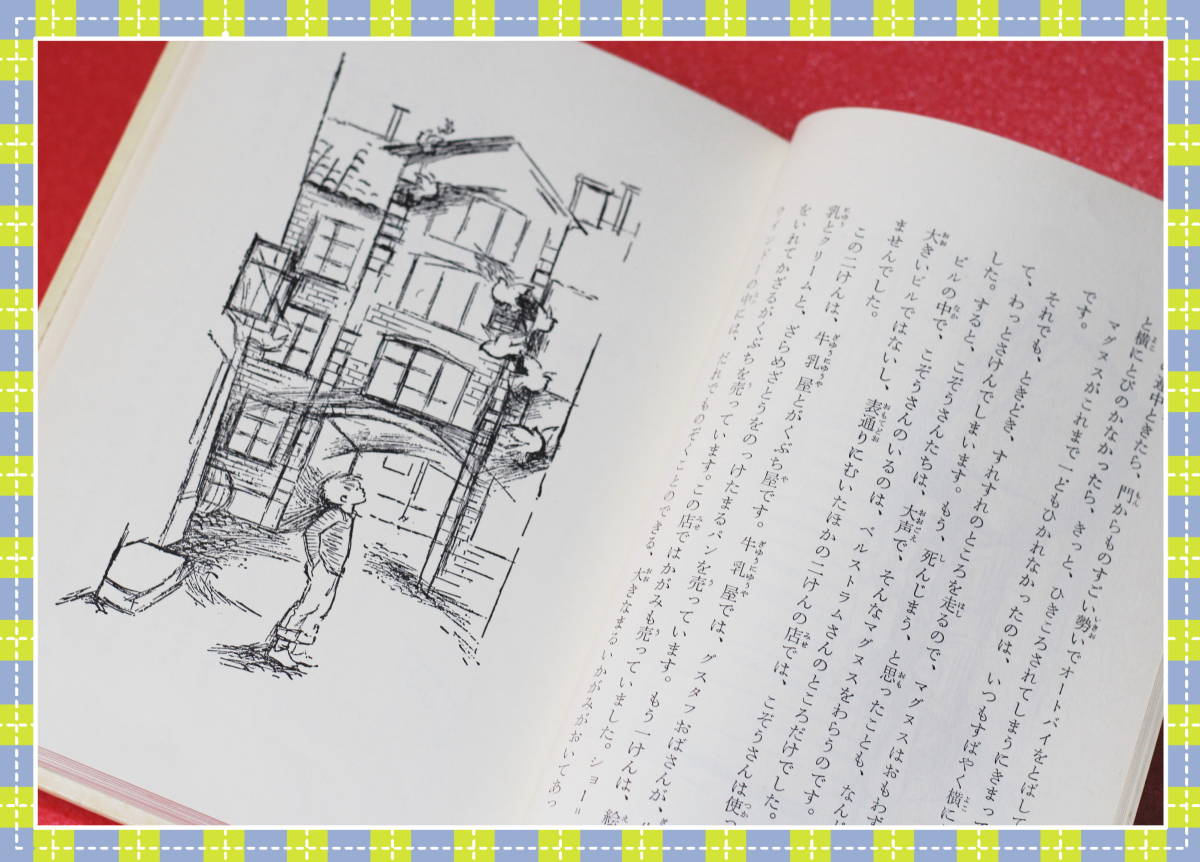 い連中ときたら、門からものすごい勢いでオートバイをとばして
と横にとびのかなかったら、きっと、ひきころされてしまうにきまって
です。
マグヌスがこれまで一どもひかれなかったのは、いつもすばやく横に
それでも、ときどき、すれすれのところを走るので、マグヌスはおもわず
て、わっとさけんでしまいます。もう、死んじまう、と思ったことも、なん
した。すると、こぞうさんたちは、大声で、そんなマグヌスをわらうのです。
ビルの中で、こぞうさんのいるのは、ベルストラムさんのところだけでした。
大きいビルではないし、表通りにむいたほかの二けんの店では、こぞうさんは使っ
ませんでした。
この二けんは、牛乳屋とがくぶち屋です。牛乳屋では、グスタフおばさんが、
乳とクリームと、ざらめざとうをのっけたまるパンを売っています。もう一けんは、絵
をいれてかざるがくぶちを売っています。この店ではかがみも売っていました。ショー=
ウインドーの中には、だれでものぞくことのできる、大きなまるいかがみがおいてあっ